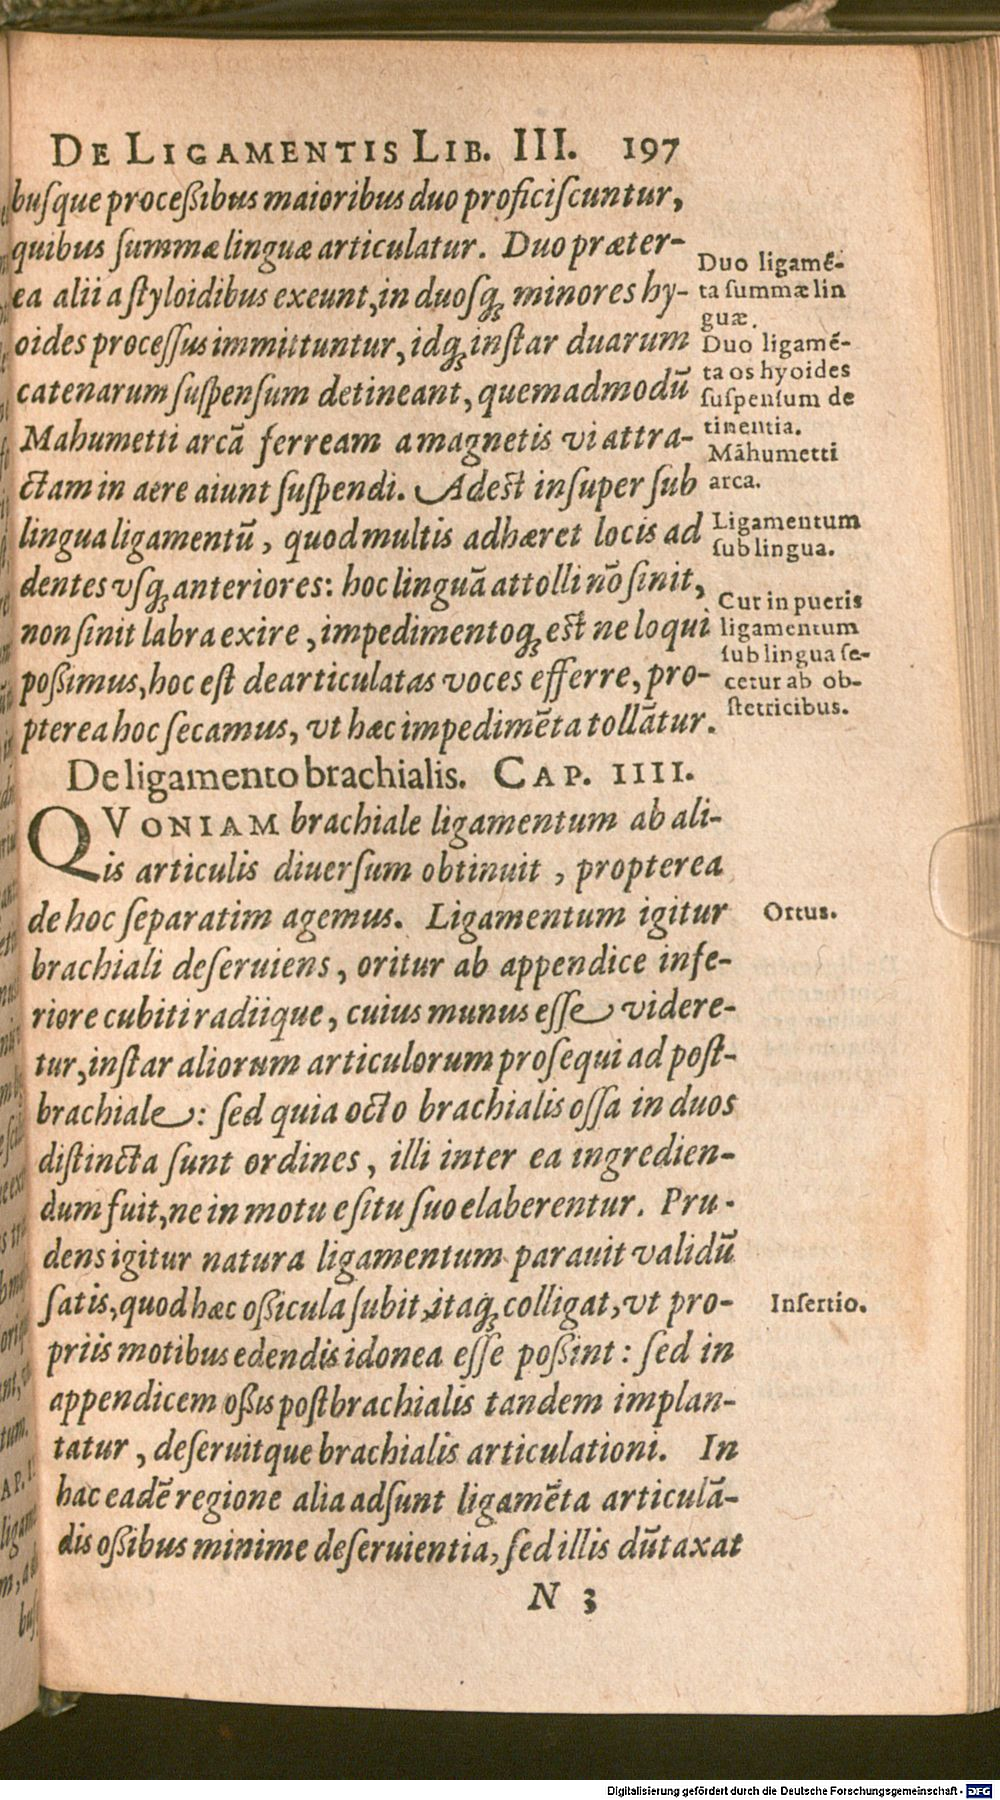 DE LIGAMENTIS LIB. III. 197
busque proceßibus maioribus duo proficiscuntur,
quibus summæ linguæ articulatur. Duo præter-
ea alii a styloidibus exeunt, in duosq́ꝫ minores hy-
oides processus immittuntur, idq́ꝫ instar duarum
catenarum suspensum detineant, quemadmodū
Mahumetti arcā ferream a magnetis vi attra-
ctam in aere aiunt suspendi. Adest insuper sub
lingua ligamentū, quod multis adhæret locis ad
dentes vsq́ꝫ anteriores: hoc linguā attolli nō sinit,
non sinit labra exire, impedimentoq́ꝫ est ne loqui
poßimus, hoc est dearticulatas voces efferre, pro-
pterea hoc secamus, vt hæc impedimēta tollātur.
Duo ligamē-
ta summæ lin
guæ.
Duo ligamē-
ta os hyoides
suspensum de
tinentia.
Māhumetti
arca.
Ligamentum
sub lingua.
Cur in pueris
ligamentum
sub lingua se-
cetur ab ob-
stetricibus.
De ligamento brachialis. CAP. IIII.
QVONIAM brachiale ligamentum ab ali-
is articulis diuersum obtinuit, propterea
de hoc separatim agemus. Ligamentum igitur
Ortus.
brachiali deseruiens, oritur ab appendice infe-
riore cubiti radiique, cuius munus esse videre-
tur, instar aliorum articulorum prosequi ad post-
brachiale: sed quia octo brachialis ossa in duos
distincta sunt ordines, illi inter ea ingredien-
dum fuit, ne in motu e situ suo elaberentur. Pru-
dens igitur natura ligamentum parauit validū
satis, quod hæc oßicula subit, itaq́ꝫ colligat, vt pro-
Insertio.
priis motibus edendis idonea esse poßint: sed in
appendicem oßis postbrachialis tandem implan-
tatur, deseruitque brachialis articulationi. In
hac eadē regione alia adsunt ligamēta articulā-
dis oßibus minime deseruientia, sed illis dūtaxat
N 3
Digitalisierung gefördert durch die Deutsche Forschungsgemeinschaft - DFG